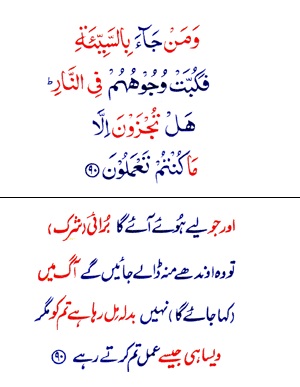 وَمَنْ جَآءَ بِالسَّيِّئَةِ
فَكُبَّتْ وُجُوْهُهُمْ فِي النَّارِ ؕ
هَلْ تُجْزَوْنَ اِلَّا
مَا كُنْتُمْ تَعْمَلُوْنَ ۹۰
اور جو لیے ہُوئے آئے گا بُرائی (شرک)
تو وہ اوندھے منہ ڈالے جائیں گے آگ میں
(کہا جائے گا) نہیں بدلہ مل رہا ہے تم کو مگر
ویسا ہی جیسے عمل تم کرتے رہے ۹۰